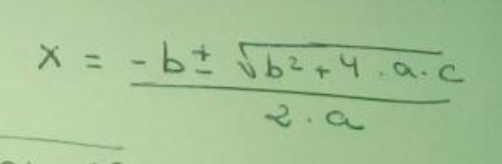 x = -b ± √b² + 4 . a . c
2 . a